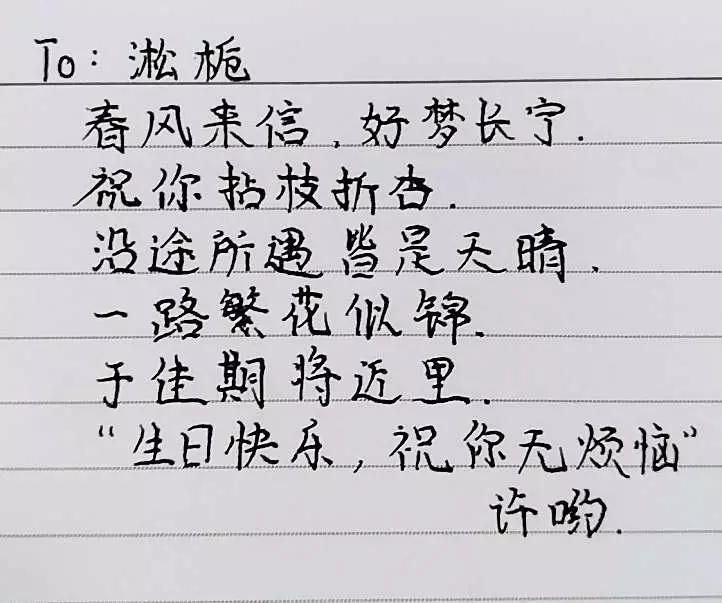 To：淞栀
春风来信，好梦长宁.
祝你拈枝折杏.
沿途所遇皆是天晴.
一路繁花似锦.
于佳期将近里.
“生日快乐，祝你无烦恼”
许哟.